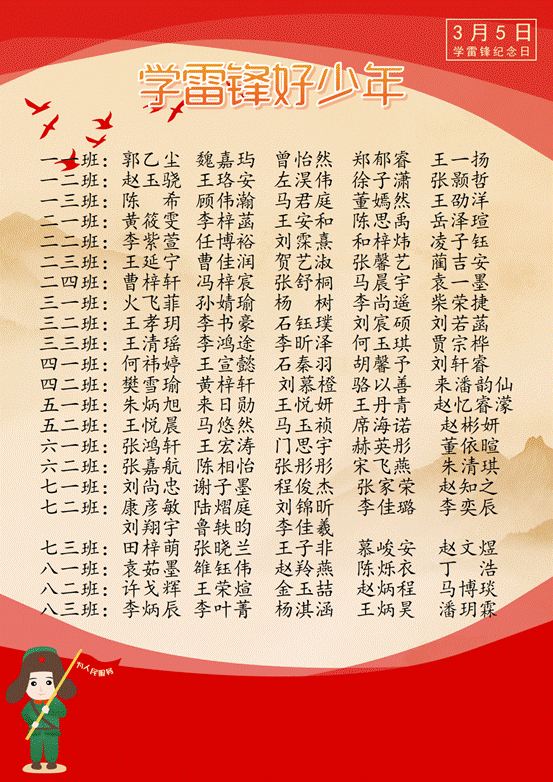 3月5日
学雷锋纪念日
学雷锋好少年
一一班：郭乙尘 魏嘉玙 曾怡然 郑郁睿 王一扬
一二班：赵玉骁 王珞安 左淏伟 徐子潇 张颢哲
一三班：陈希 顾伟瀚 马君庭 董嫣然 王劭洋
二一班：黄筱雯 李梓菡 王安和 陈思禹 岳泽瑄
二二班：李紫萱 任博裕 刘霂熹 和梓炜 凌子钰
二三班：王延宁 曹佳润 贺艺淑 张馨艺 蔺吉安
二四班：曹梓轩 冯梓宸 张舒桐 马晨宇 袁一墨
三一班：火飞菲 孙婧瑜 杨树 李尚遥 柴荣捷
三二班：王孝玥 李书豪 石钰璞 刘宸硕 刘若菡
三三班：王清瑶 李鸿途 李昕泽 何玉琪 贾宗桦
四一班：何祎婷 王宣懿 石秦羽 胡馨予 刘轩睿
四二班：樊雪瑜 黄梓轩 刘慕橙 骆以善 来潘韵仙
五一班：朱炳旭 来日勋 王悦妍 王丹青 赵忆睿濛
五二班：王悦晨 马悠然 马玉祯 席海诺 赵彬妍
六一班：张鸿轩 王宏涛 门思宇 赫英彤 董依暄
六二班：张嘉航 陈相怡 张彤彤 宋飞燕 朱清琪
七一班：刘尚忠 谢子墨 程俊杰 张家荣 赵知之
七二班：康彦敏 陆熠庭 刘锦昕 李佳璐 李奕辰
刘翔宇 鲁轶昀 李佳羲
七三班：田梓萌 张晓兰 王子非 慕峻安 赵文煜
八一班：袁茹墨 雒钰伟 赵羚燕 陈烁衣 丁浩
八二班：许戈辉 王荣煊 金玉喆 赵炳程 马博琰
八三班：李炳辰 李叶菁 杨淇涵 王炳昊 潘玥霖
为人民服务